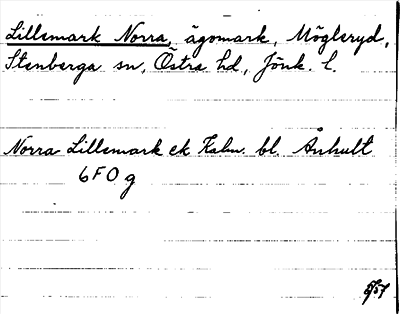 Lillemark Norra, ägomark, Mögleryd,
Stenberga sn, Östra hd, Jönk. l.
Norra Lillemark ek Kalm. bl. Århult
6F0g